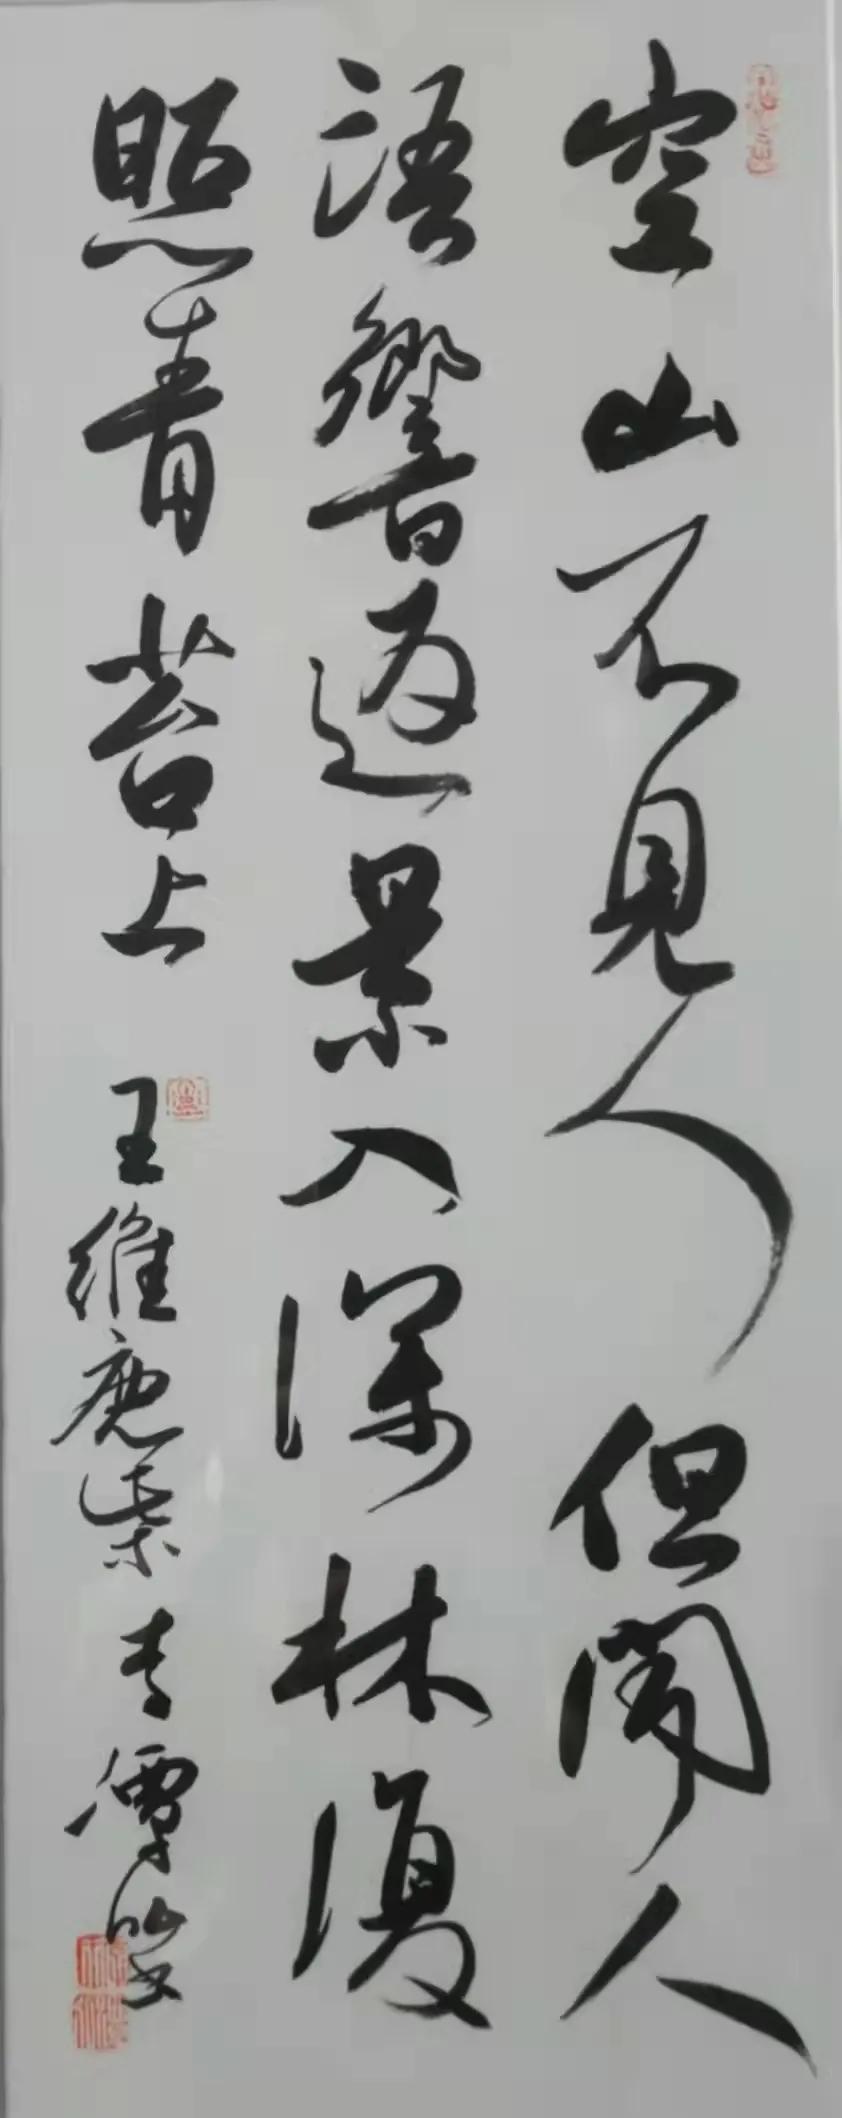 空山不見人但聞人
語響返景入深林復
照青苔上
王維鹿柴